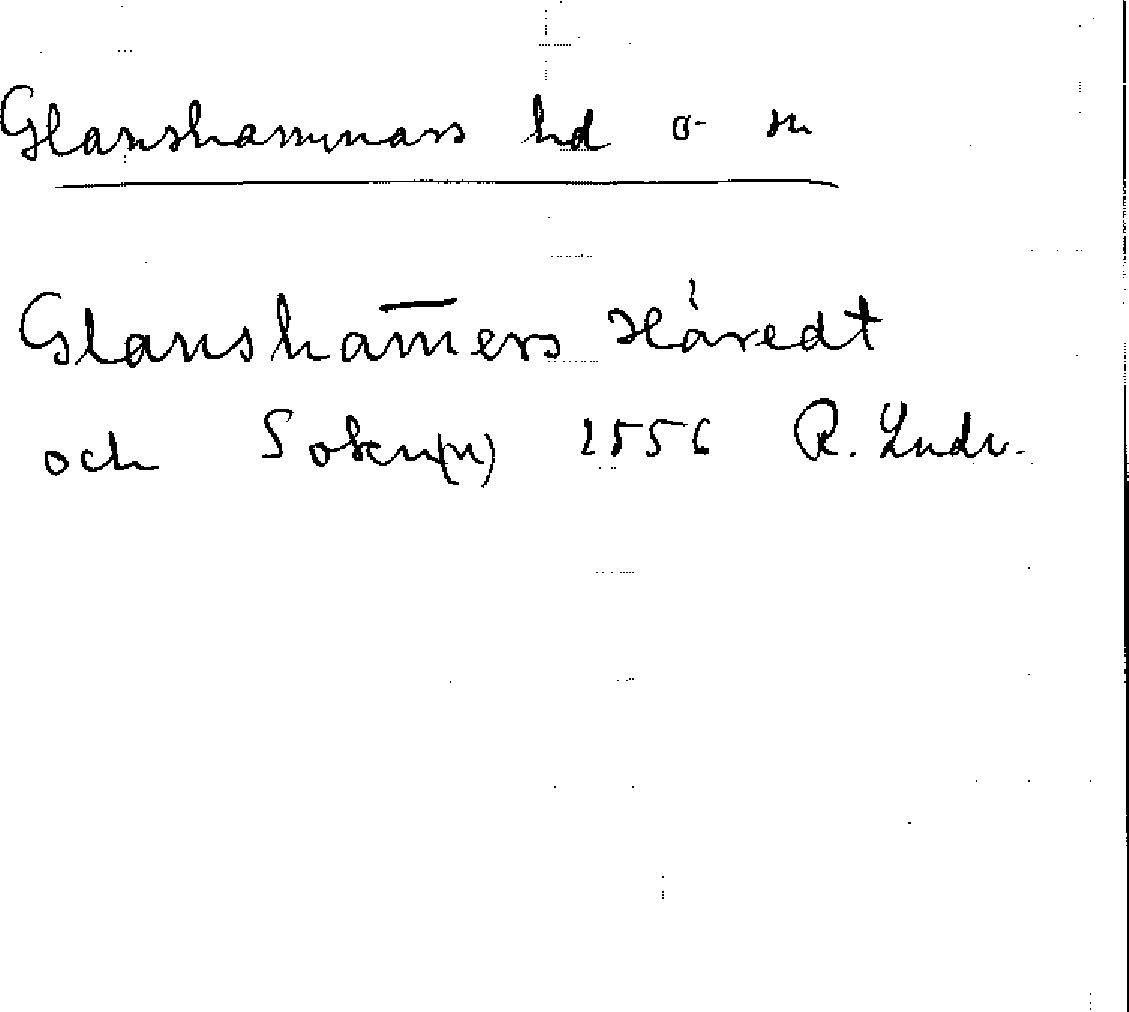 Glanshammars hd o sn
Glansham̅ers Håredt
och Sokn(n) 1556 R. Ludv.